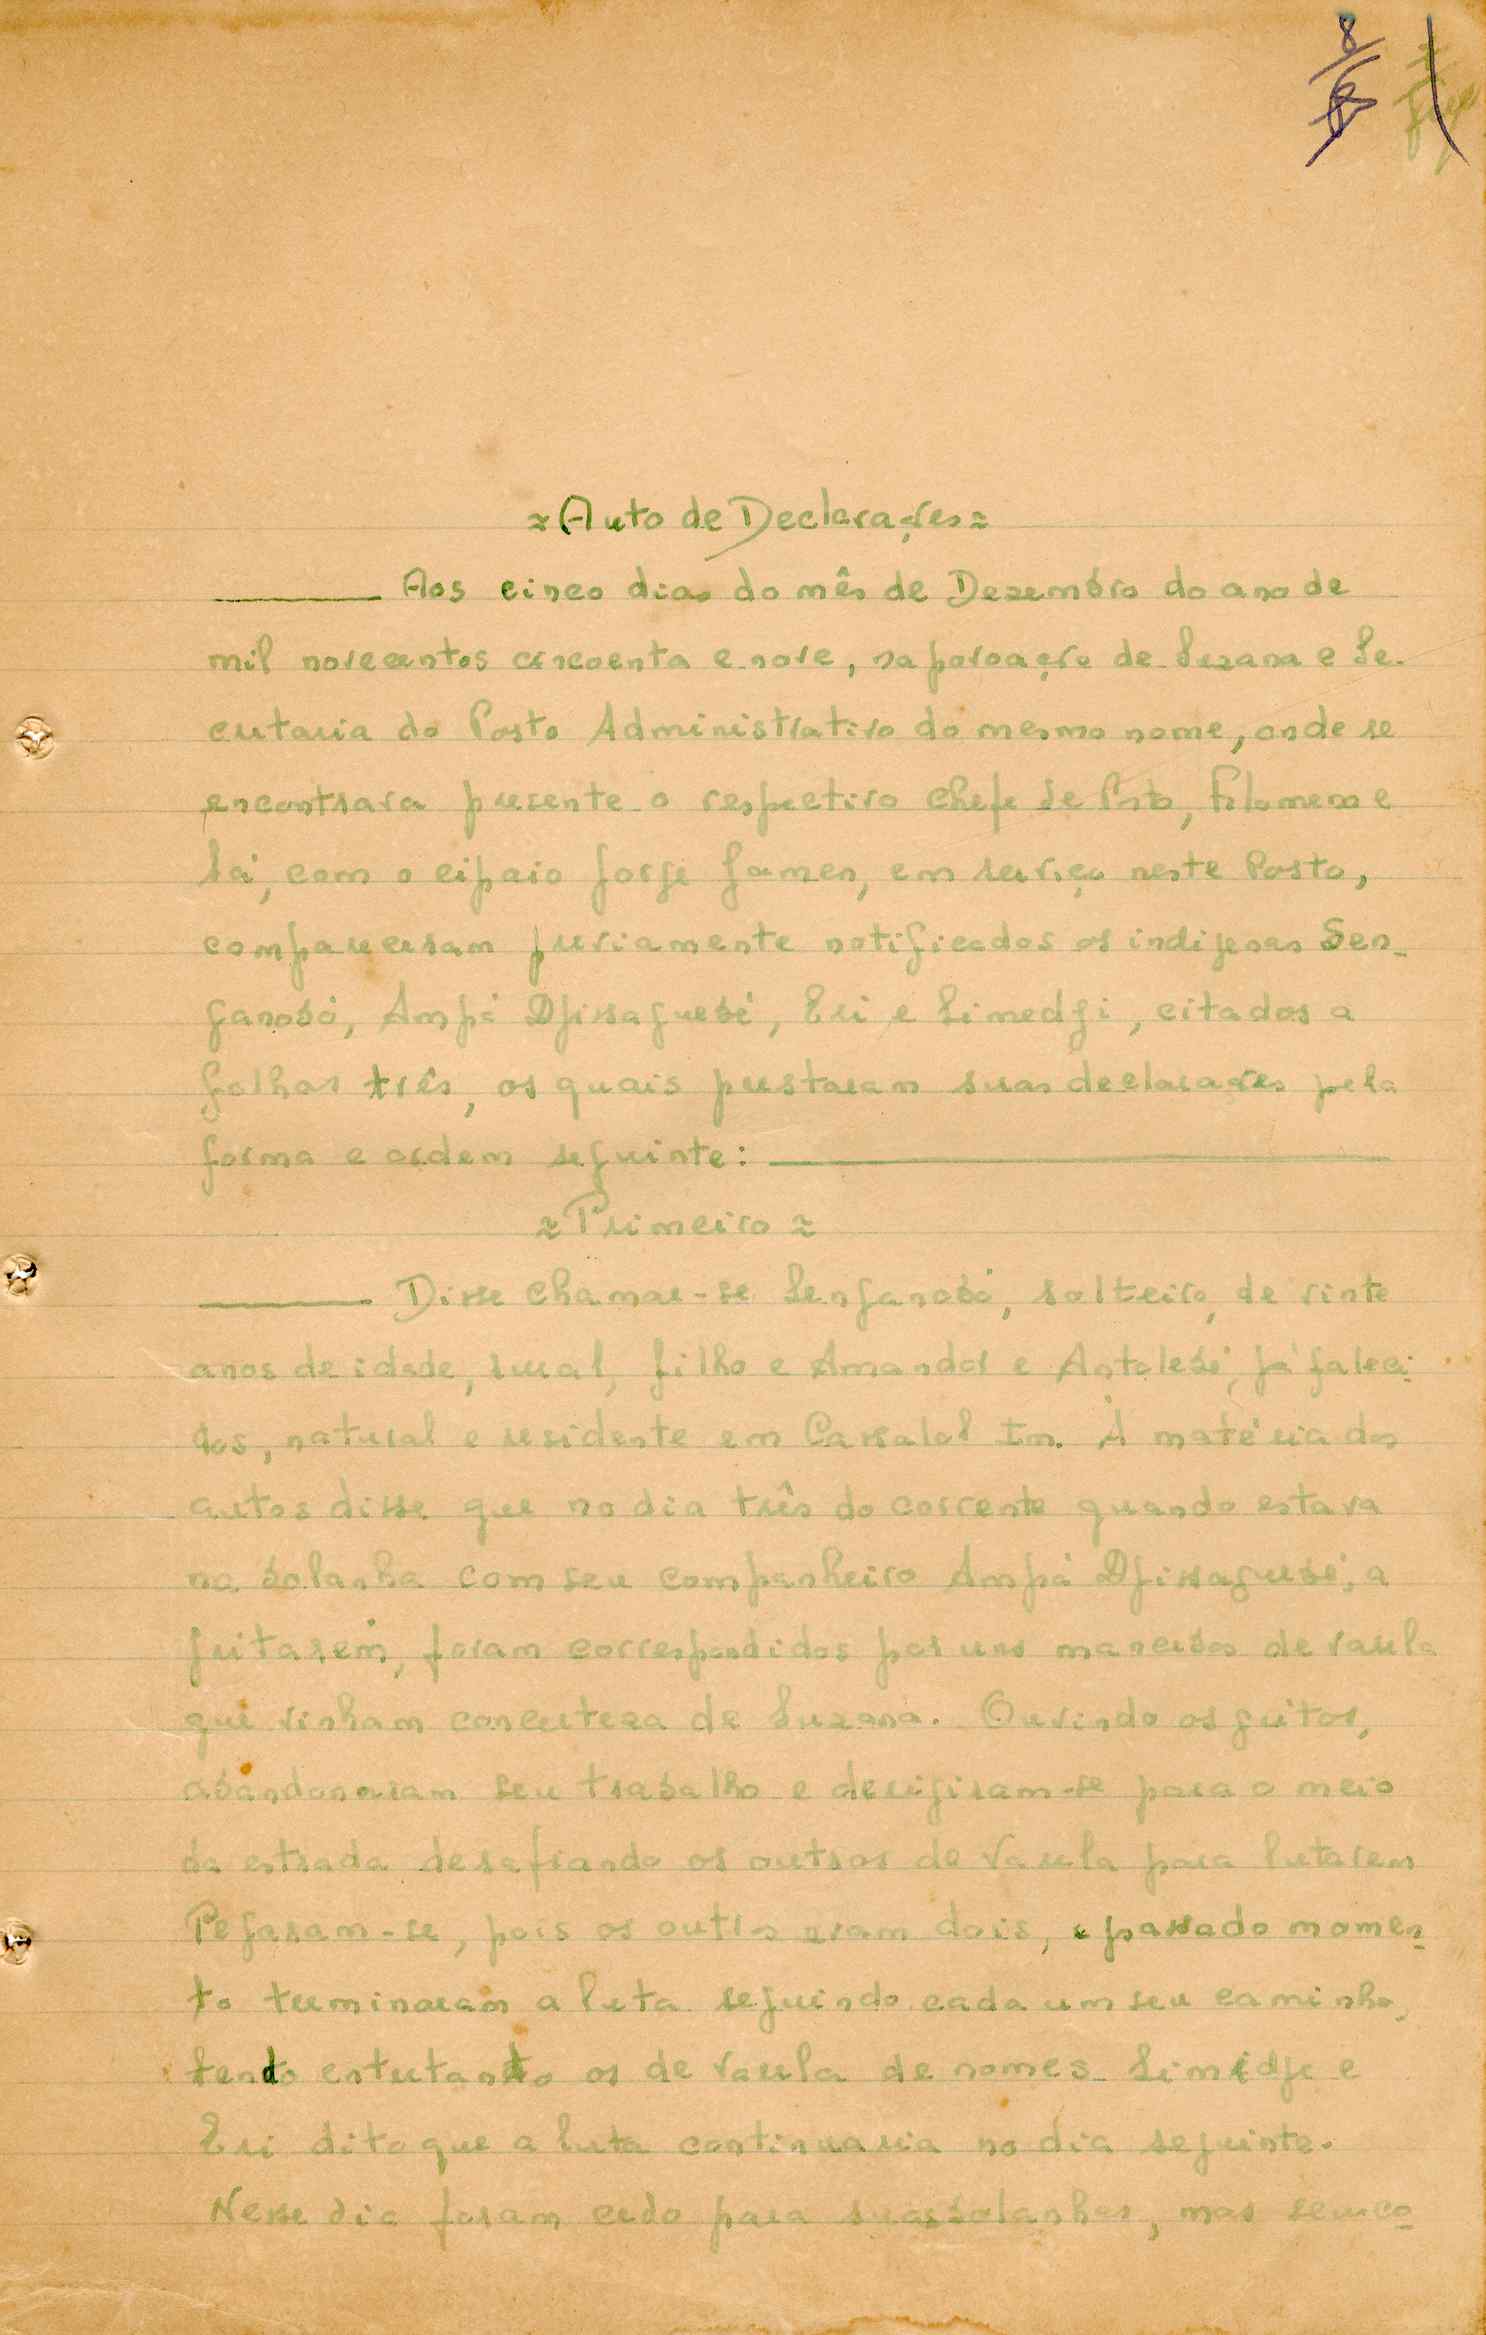 8
≈ Auto de Declarações ≈
Aos cinco dias do mês de Dezembro do ano de
mil novecentos cincoenta e nove, na povoação de Suzana e Se-
cretaria do Posto Administrativo do mesmo nome, onde se
encontrava presente o respectivo chefe de Posto, Filomeno e
Sá, com o cipaio Jorge Gomes, em serviço neste Posto,
compareceram previamente notificados os indigenas Sen-
ganobó, Ampá Djissaguebé, Eri e Simedji, citados a
folhas três, os quais prestaram suas declarações pela
forma e ordem seguinte:
≈ Primeiro ≈
Disse chamar-se Senganobó, solteiro, de vinte
anos de idade, rural, filho e Amandol e Antolebé, já faleci-
dos, natural e residente em Cassalol. À matéria dos
autos disse que no dia três do corrente quando estava
na bolanha com seu companheiro Ampá Djissaguebé, a
gritarem, foram correspondidos por uns mancebos de Varela
que vinham concerteza de Suzana. Ouvindo os gritos,
abandonaram seu trabalho e derigiram-se para o meio
da estrada desafiando os outros de Varela para lutarem
Pegaram-se, pois os outros eram dois, e passado momen-
to terminaram a luta seguindo cada um seu caminho,
tendo entretanto os de Varela de nomes Simidje e
Eri dito que a luta continuaria no dia seguinte.
Nesse dia foram cedo para suas bolanhas, mas